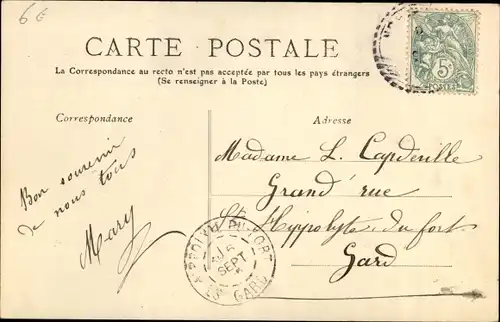 6€
CARTE POSTALE
La Correspondance au recto n'est pas acceptée par tous les pays étrangers
(Se renseigner à la Poste)
Correspondance
Adresse
5c
POSTES
Bon souvenir
de nous tous
Mary
Madame L. Capdeville
Grand'rue
St Hippolyte du fort
Gard
HIPPOLYTE DU FORT
6
SEPT
GARD